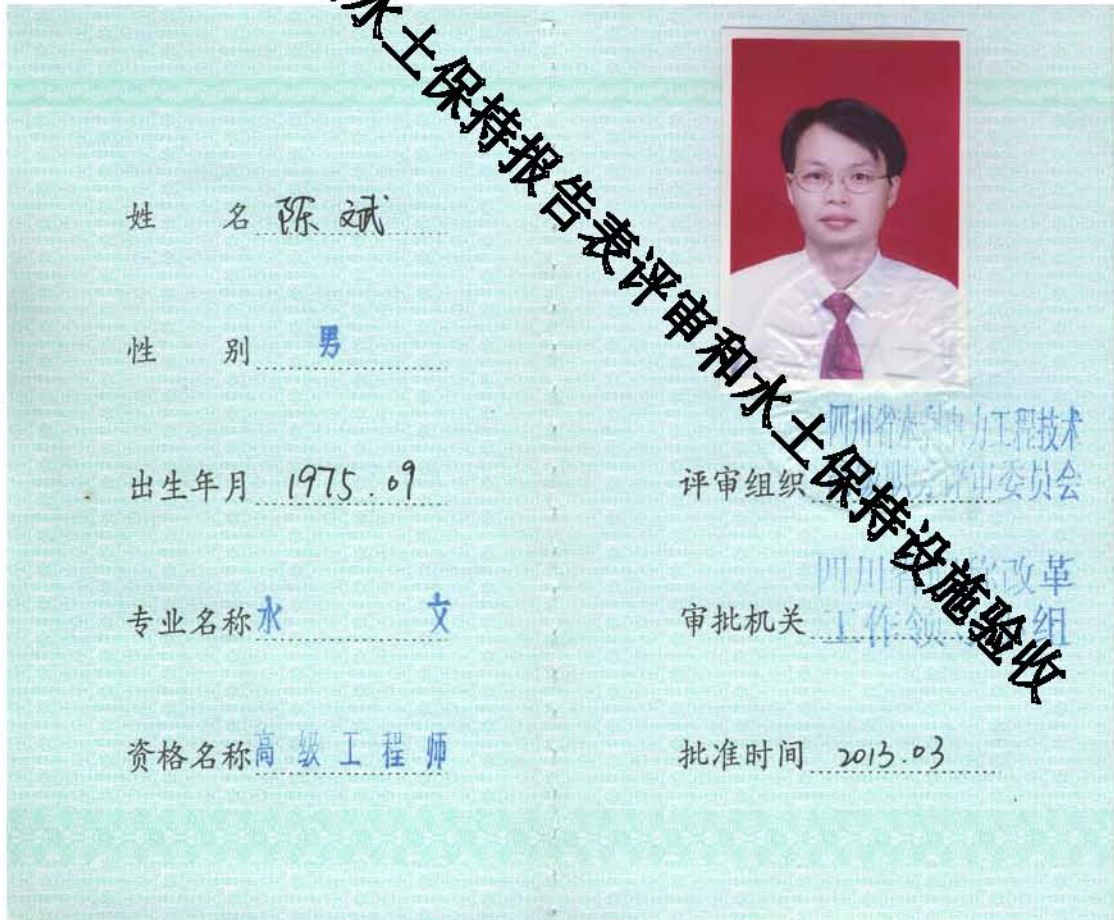 水土保持报告表评审和水土保持设施验收
姓 名 陈斌
性 别 男
出生年月 1975.09
专业名称 水 文
资格名称 高级工程师
四川省水利电力工程技术
评审组织 职务评审委员会
四川省 称改革
审批机关 工作领 组
批准时间 2013.03